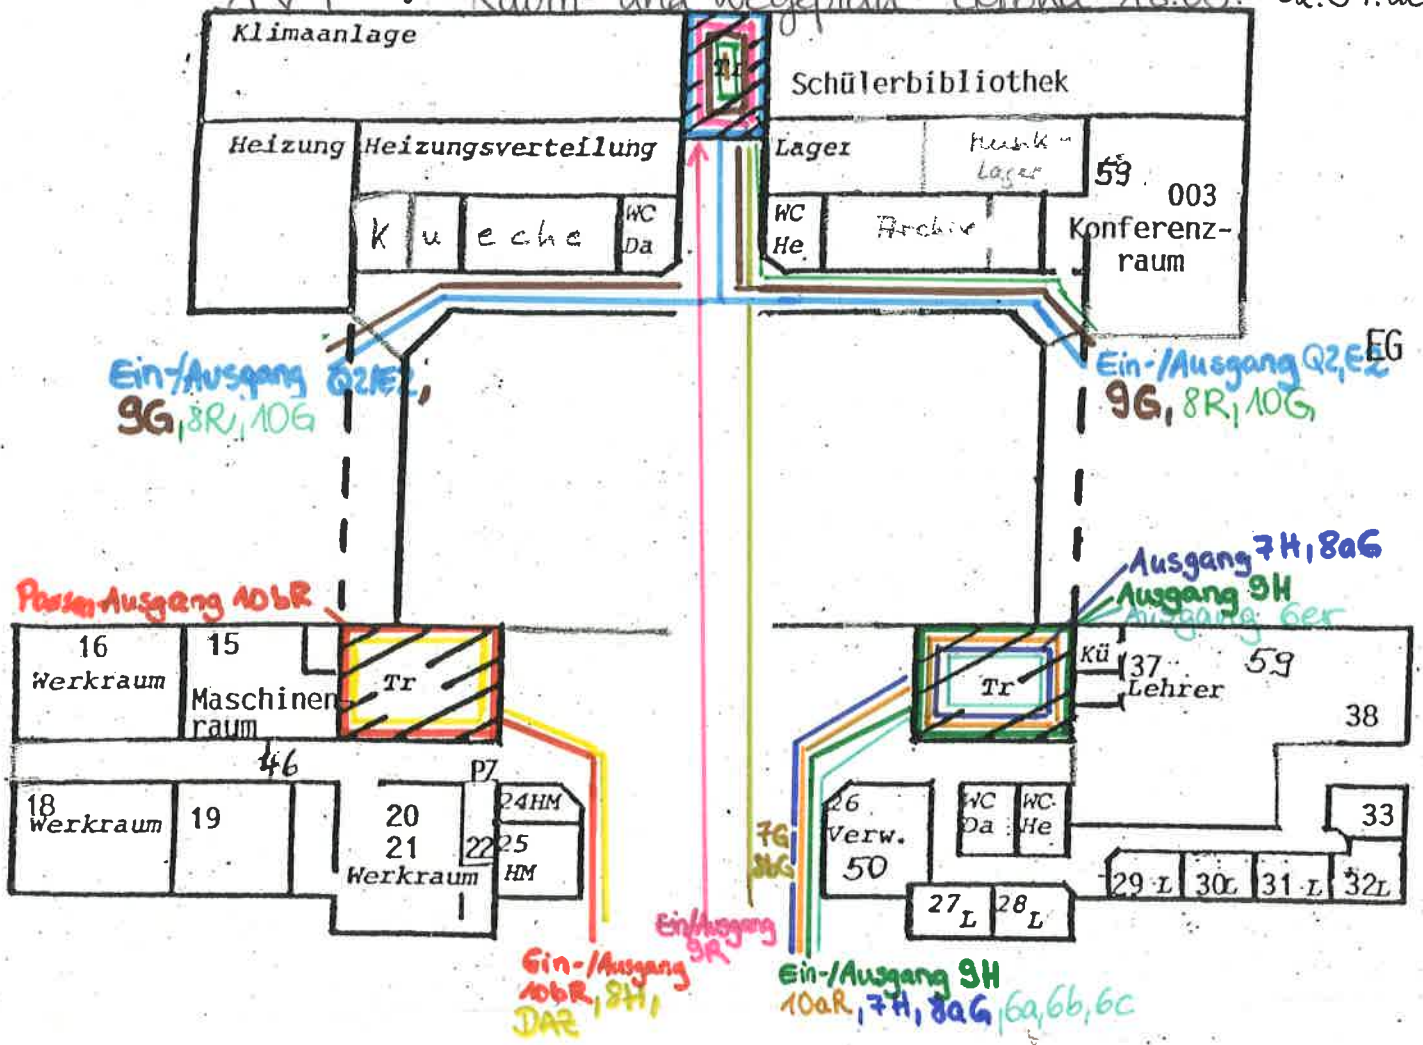 Raum- und Wegeplan Corona
Klimaanlage
Tr
Schülerbibliothek
Heizung
Heizungsverteilung
Lager
Musik-
Lager
59
003
Konferenz-
raum
K u e che
WC
Da
WC
He
Archiv
EG
Ein-/Ausgang Q2/E2,
9G, 8R, 10G
Ein-/Ausgang Q2, E2
9G, 8R, 10G
Ausgang 7H, 8aG
Ausgang 9H
Ausgang 6er
Pausen-Ausgang 10bR
16
Werkraum
15
Maschinen-
raum
Tr
Tr
Kü
37
Lehrer
59
38
46
P7
18
Werkraum
19
20
21
Werkraum
22
24HM
25
HM
7G
8bG
26
Verw.
50
WC
Da
WC
He
33
29 L
30L
31 L
32L
27 L
28 L
Ein/Ausgang
9R
Ein-/Ausgang
10bR, 8H,
DAZ
Ein-/Ausgang 9H
10aR, 7H, 8aG, 6a, 6b, 6c